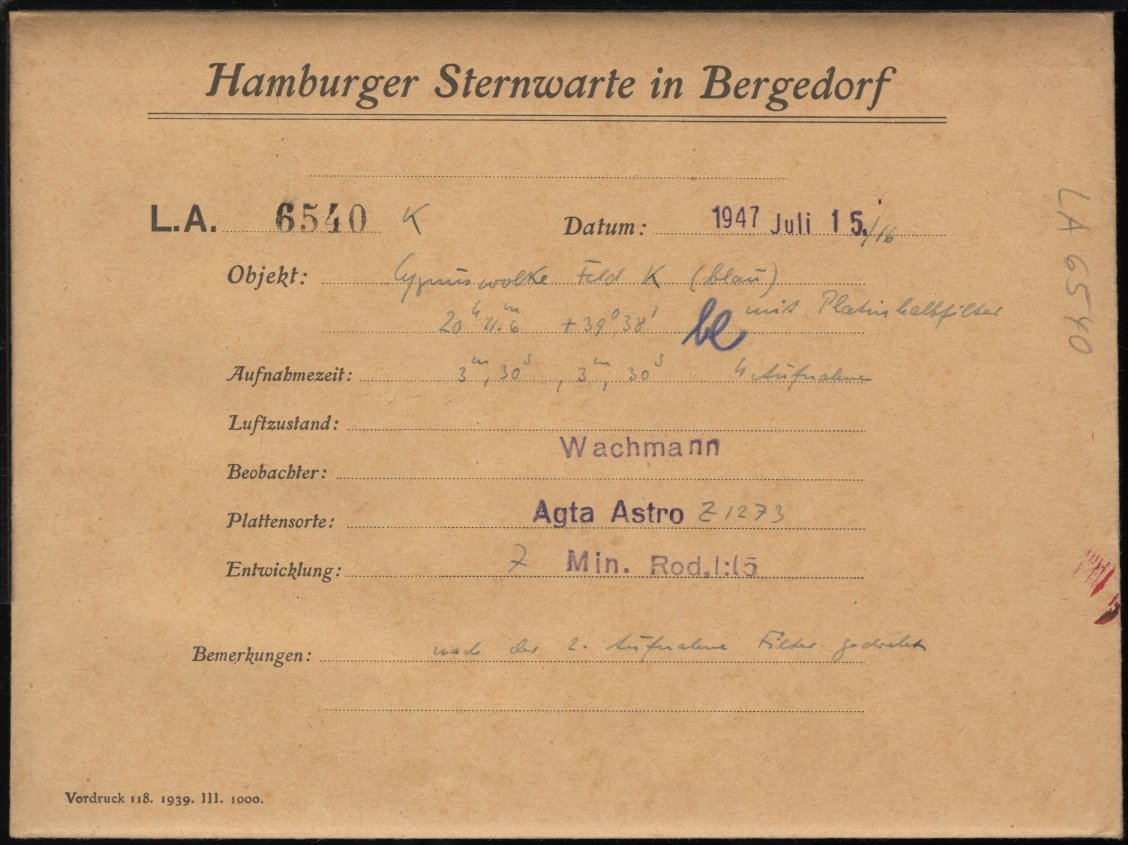 Hamburger Sternwarte in Bergedorf
L.A. 6540 K Datum: 1947 Juli 15./16
Objekt: Cygnuswolke Feld K (blau)
mit Platinhalbfilter
20h 11.m6 +39° 38' be
Aufnahmezeit: 3m, 30s, 3m, 30s 4 Aufnahmen
Luftzustand:
Wachmann
Beobachter:
Plattensorte: Agfa Astro Z 1273
Entwicklung: 7 Min. Rod. 1:15
Bemerkungen: nach der 2. Aufnahme Filter gedreht
Vordruck 118. 1939. III. 1000.
LA 6540